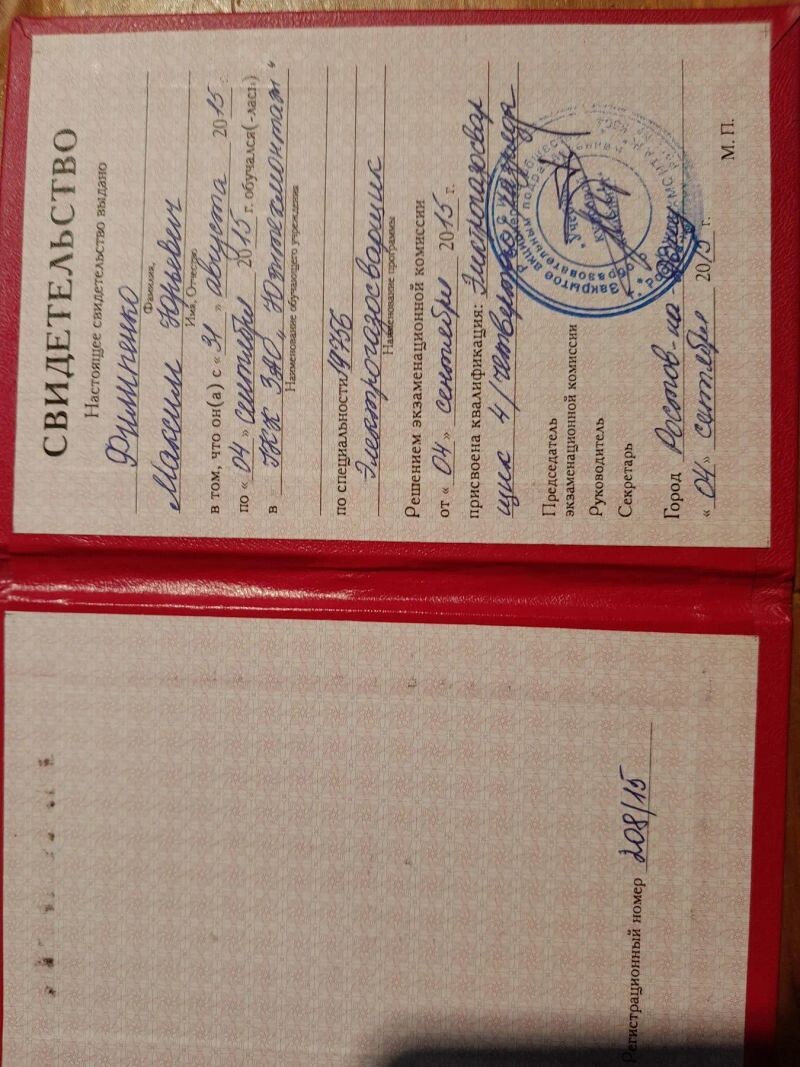 СВИДЕТЕЛЬСТВО
Настоящее свидетельство выдано
Филипенко
Фамилия,
Максим Юрьевич
Имя, Отчество
в том, что он(а) с « 31 » августа 2015 г.
по « 04 » сентября 2015 г. обучался(-лась)
в УКК ЗАО „Южтехмонтаж“
Наименование обучающего учреждения
по специальности 19756
Электрогазосварщик
Наименование программы
Решением экзаменационной комиссии
от « 04 » сентября 2015 г.
присвоена квалификация: Электрогазосвар
щик 4/четвертого/ разряда
Председатель
экзаменационной комиссии
Руководитель
Секретарь
Город Ростов-на-Дону
« 04 » сентября 2015 г.
М. П.
Закрытое акционерное общество
Регистрационный номер 208/15